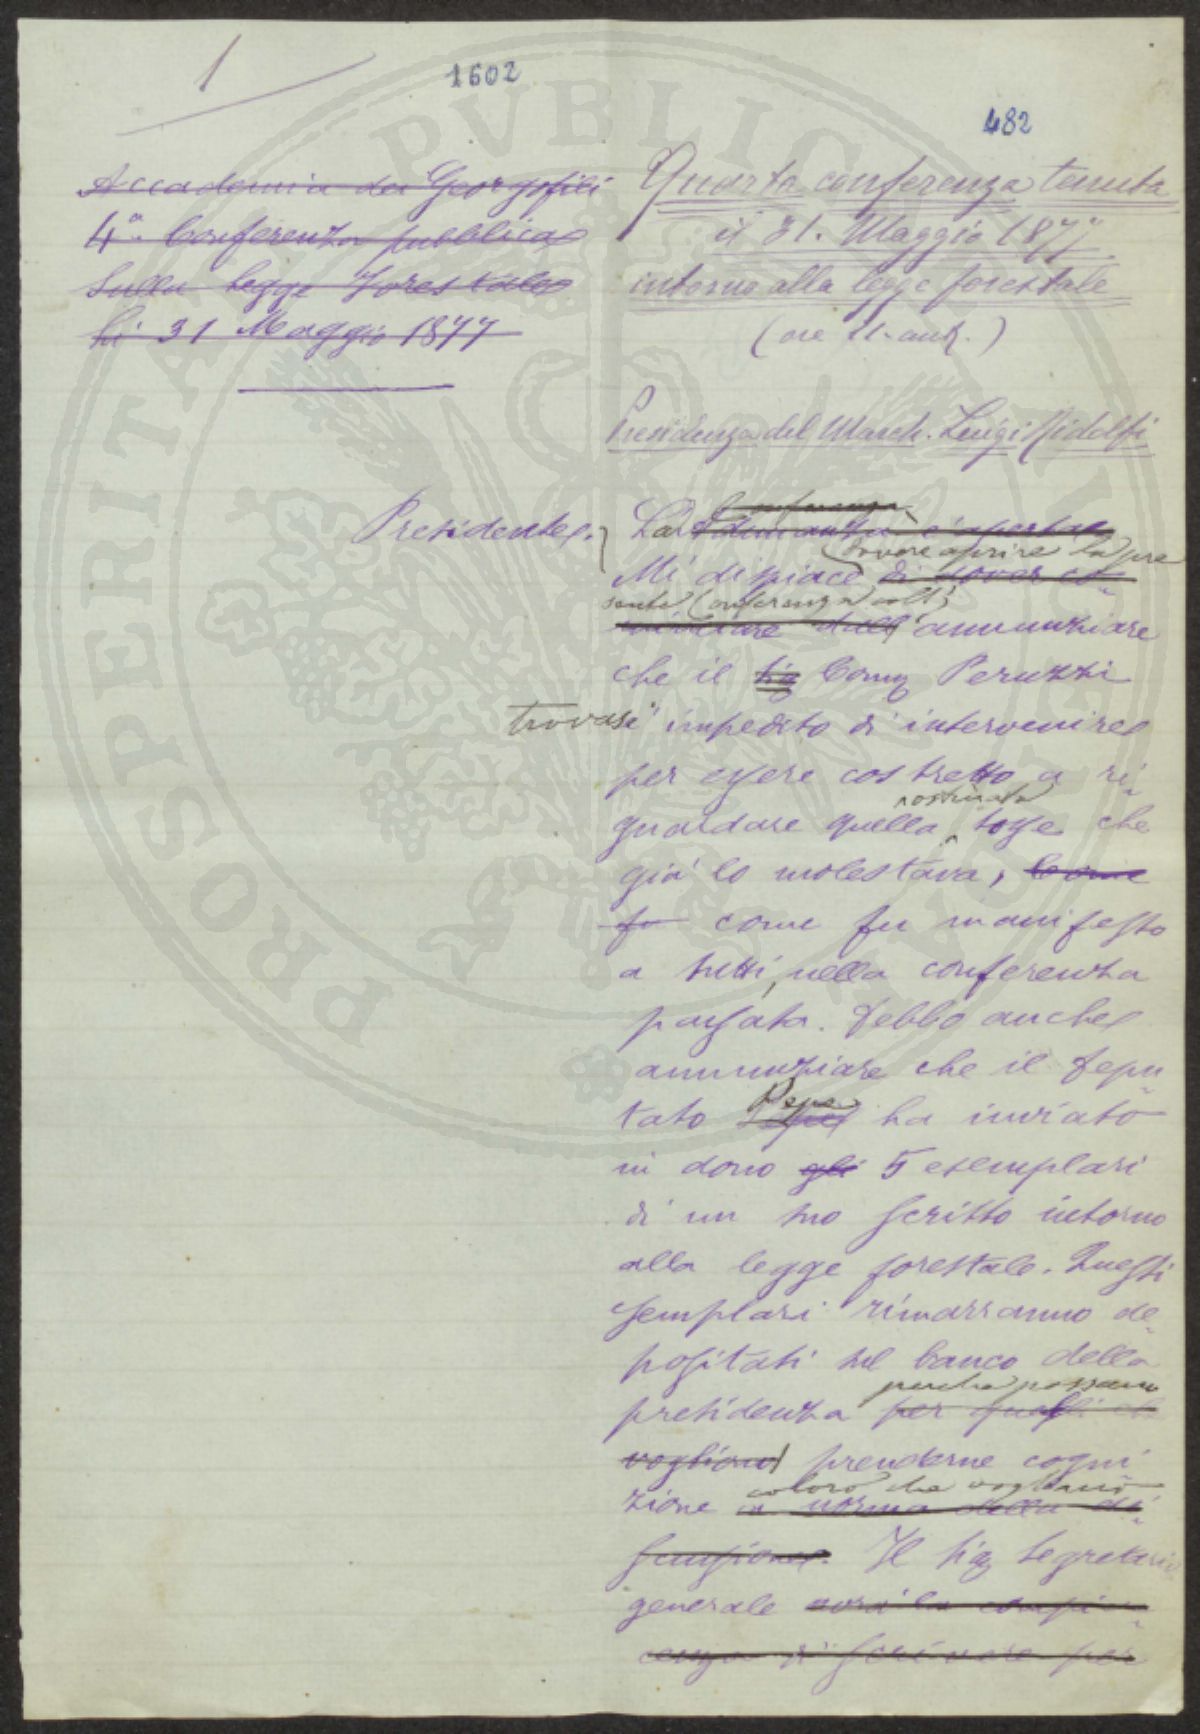 1
1602
482
Accademia dei Georgofili
4ª Conferenza pubblica
Sulla Legge Forestale
li 31 Maggio 1877
Quarta conferenza tenuta
il 31. Maggio 1877
intorno alla legge forestale
(ore 11. ant.)
Presidenza del March. Luigi Ridolfi
Presidente.
conferenza
La adunanza è aperta
dovere aprire la pre
Mi dispiace di dover co-
sente conferenza coll'
minciare dall annunziare
che il Sig Comm Peruzzi
trovasi impedito di intervenire
per essere costretto a ri-
ostinata
guardare quella tosse che
già lo molestava, come
fu come fu manifesto
a tutti, nella conferenza
passata. Debbo anche
annunziare che il Depu-
Pepe
tato ha inviato
in dono gli 5 esemplari
di un suo scritto intorno
alla legge forestale. Questi
esemplari rimarranno de-
positati sul banco della
perché possano
presidenza per quelli che
vogliono prenderne cogni-
coloro che vogliano
zione in norma della di-
scussione. Il Sig Segretario
generale avrà la compia-
cenza di scrivere per
PROSPERITATI PVBLICAE